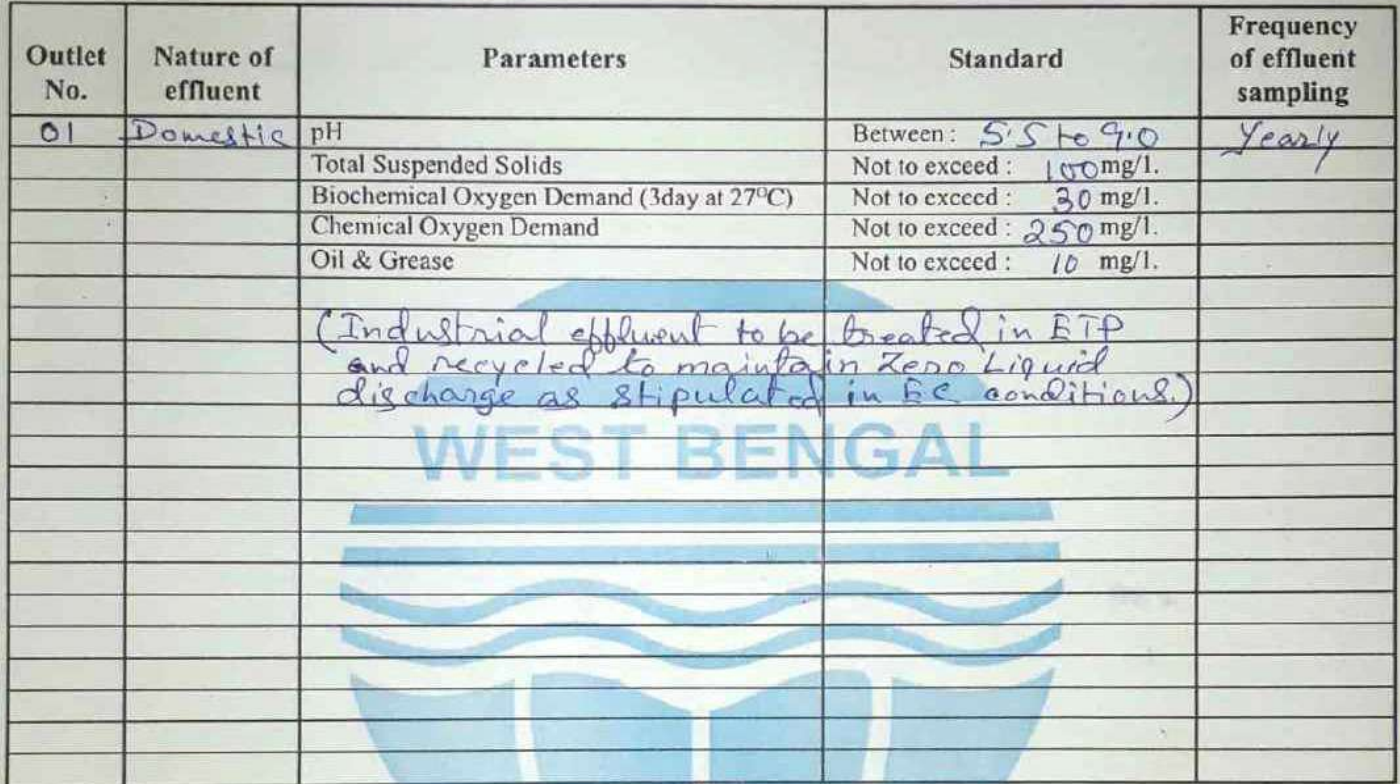 Outlet No. Nature of effluent Parameters Standard Frequency of effluent sampling
01 Domestic pH Between : 5.5 to 9.0 Yearly
Total Suspended Solids Not to exceed : 100 mg/l.
Biochemical Oxygen Demand (3day at 27°C) Not to exceed : 30 mg/l.
Chemical Oxygen Demand Not to exceed : 250 mg/l.
Oil & Grease Not to exceed : 10 mg/l.
(Industrial effluent to be treated in ETP
and recycled to maintain Zero Liquid
discharge as stipulated in EC conditions.)
WEST BENGAL